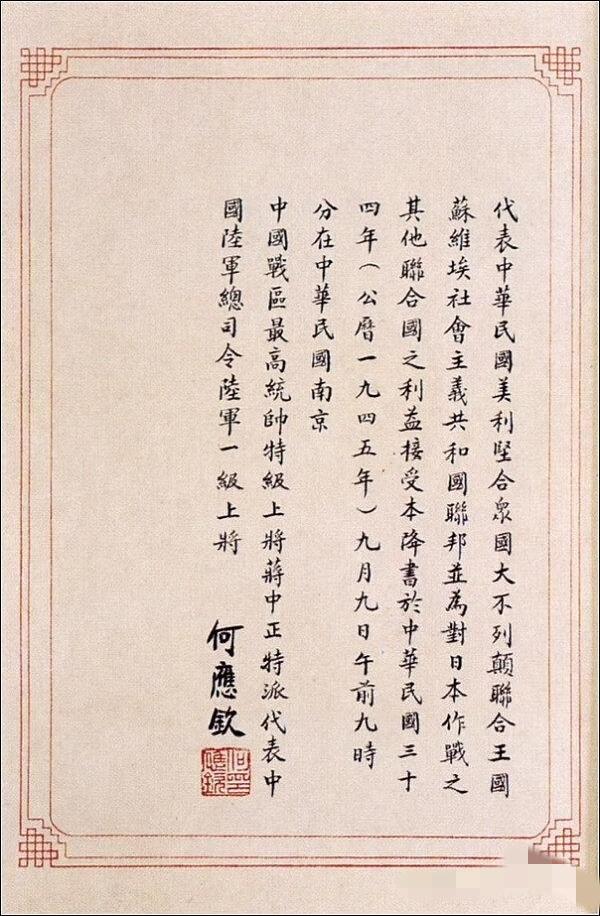 代表中華民國美利堅合衆國大不列顛聯合王國
蘇維埃社會主義共和國聯邦並為對日本作戰之
其他聯合國之利益接受本降書於中華民國三十
四年(公曆一九四五年)九月九日午前九時
分在中華民國南京
中國戰區最高統帥特級上將蔣中正特派代表中
國陸軍總司令陸軍一級上將 何應欽
何印應欽